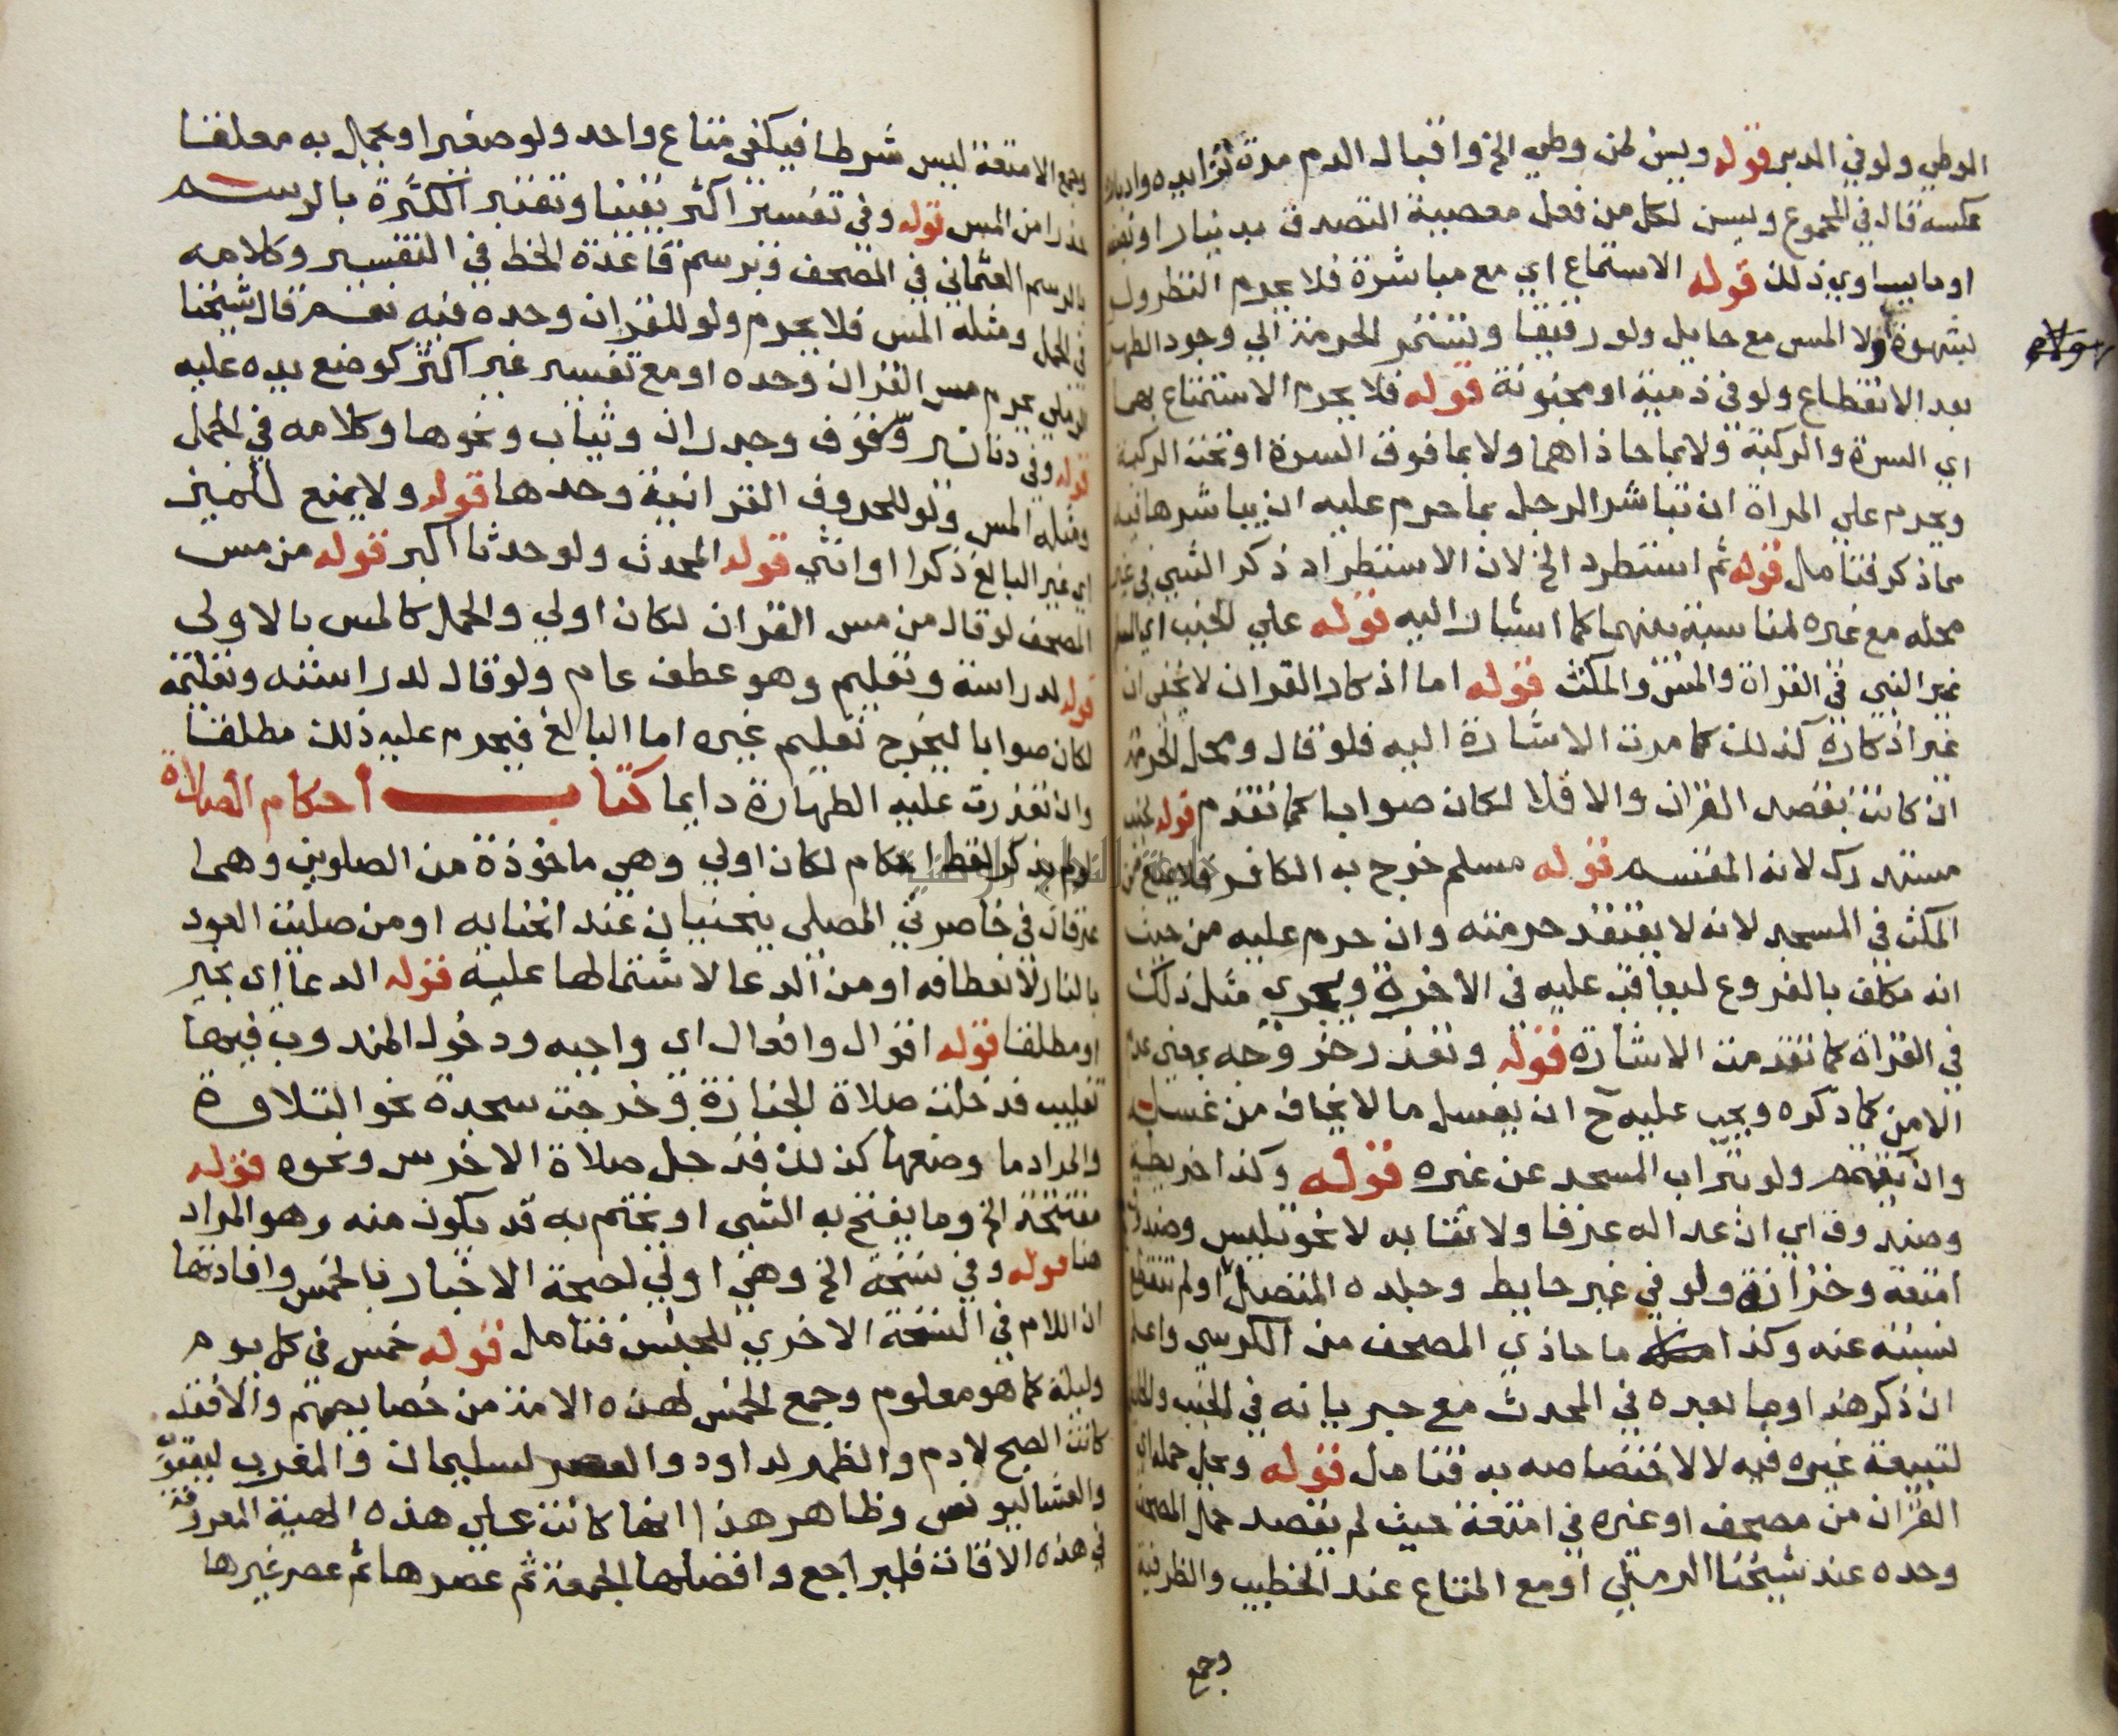 الوطي ولو في الدبر قوله ويسن لمن وطي الخ واقبال الدم مدة تزايده وادباره
عكسه قال في المجموع ويسن لكل من فعل معصية التصدق بدينار او نصفه
او ما يساوي ذلك قوله الاستمتاع اي مع مباشرة فلا يحرم النظر ولو
بشهوة ولا المس مع حايل ولو رقيقا وتستمر الحرمة الي وجود الطهر
بعد الانقطاع ولو في ذمية او مجنونة قوله فلا يحرم الاستمتاع بهما
اي السرة والركبة ولا بما حاذاهما ولا بما فوق السرة او تحت الركبة
ويحرم علي المراة ان تباشر الرجل بما حرم عليه ان يباشرها فيه
مما ذكر فتامل قوله ثم استطرد الخ لان الاستطراد ذكر الشي في غير
محله مع غيره لمناسبة بينهما كما اشار اليه قوله علي الجنب اي المسلم
غير النبي في القراة والمس والمكث قوله اما اذكار القران لا يخفى ان
غير اذكاره كذلك كما مرت الاشارة اليه فلو قال ومحل الحرمة
ان كانت بقصد القران والا فلا لكان صوابا كما تقدم قوله لجنب
مستدرك لانه المقسم قوله مسلم خرج به الكافر فلا يمنع من
المكث في المسجد لانه لا يعتقد حرمته وان حرم عليه من حيث
انه مكلف بالفروع ليعاقب عليه في الاخرة ويجري مثل ذلك
في القراة كما تقدمت الاشارة قوله وتعذر خروجه بمعنى عدم
الامن كما ذكره ويجب عليه ح ان يغسل ما لا يخاف من غسله
وان يتيمم ولو بتراب المسجد عن غيره قوله وكذا خريطة
وصندوق اي ان عدا له عرفا ولاقتا به لا نحو تليس وصندوق
امتعة وخزانة ولو في غير حايط وجلده المنفصل او لم تنقطع
نسبته عنه وكذا ما حاذي المصحف من الكرسي واعلم
ان ذكر هذا وما بعده في المحدث مع جريانه في الجنب
لتبعية غيره فيه لا لاختصاصه به فتامل قوله ويحل حمله اي
القران من مصحف او غيره في امتعة حيث لم يقصد حمل المصحف
وحده عند شيخنا الرملي او مع المتاع عند الخطيب والظرفية
وجمع
وجمع الامتعة ليس شرطا فيكفي متاع واحد ولو صغيرا ويحمل به معلقا
حذرا من المس قوله وفي تفسير اكثر يقينا وتعتبر الكثرة بالرسم
بالرسم العثماني في المصحف وبرسم قاعدة الخط في التفسير وكلامه
في الحمل ومثله المس فلا يحرم ولو للقران وحده فيه نعم قال شيخنا
الرملي يحرم مس القران وحده او مع تفسير غير اكثر كوضع يده عليه
قوله وفي دنانير وسقوف وجدران وثياب ونحوها وكلامه في الحمل
ومثله المس ولو للحروف القرانية وحدها قوله ولا يمنع المميز
اي غير البالغ ذكرا او انثي قوله المحدث ولو حدثا اكبر قوله من مس
المصحف لو قال من مس القران لكان اولي والحمل كالمس بالاولى
قوله لدراسة وتعليم وهو عطف عام ولو قال لدراسته وتعليمه
لكان صوابا ليخرج تعليم غيره اما البالغ فيحرم عليه ذلك مطلقا
وان تعذرت عليه الطهارة دايما كتاب أحكام الصلاة
لو لم يذكر لفظ احكام لكان اولي وهي ماخوذة من الصلوين وهما
عرقان في خاصرتي المصلي ينحنيان عند انحنايه او من صليت العود
بالنار لانعطافه او من الدعا لاشتمالها عليه قوله الدعا اي بخير
او مطلقا قوله اقوال وافعال اي واجبه ودخول المندوب فيها
تغليب فدخلت صلاة الجنازة وخرجت سجدة نحو التلاوة
والمراد ما وضعها كذلك فدخل صلاة الاخرس ونحوه قوله
مفتتحة الخ وما يفتح به الشي او يختم به قد يكون منه وهو المراد
هنا قوله وفي نسخة الخ وهي اولي لصحة الاخبار بالخمس وافادتها
ان اللام في النسخة الاخري للجنس فتامل قوله خمس في كل يوم
وليلة كما هو معلوم وجمع الخمس لهذه الامة من خصايصهم والا فقد
كانت الصبح لادم والظهر لداود والعصر لسليمان والمغرب ليعقوب
والعشا ليونس وظاهر هذا انها كانت علي هذه الهيئة المعروفة
في هذه الاوقات فليراجع وافضلها الجمعة ثم عصرها ثم عصر غيرها